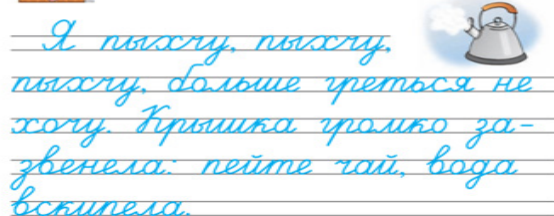 Я пыхчу, пыхчу,
пыхчу, больше греться не
хочу. Крышка громко за-
звенела: пейте чай, вода
вскипела.